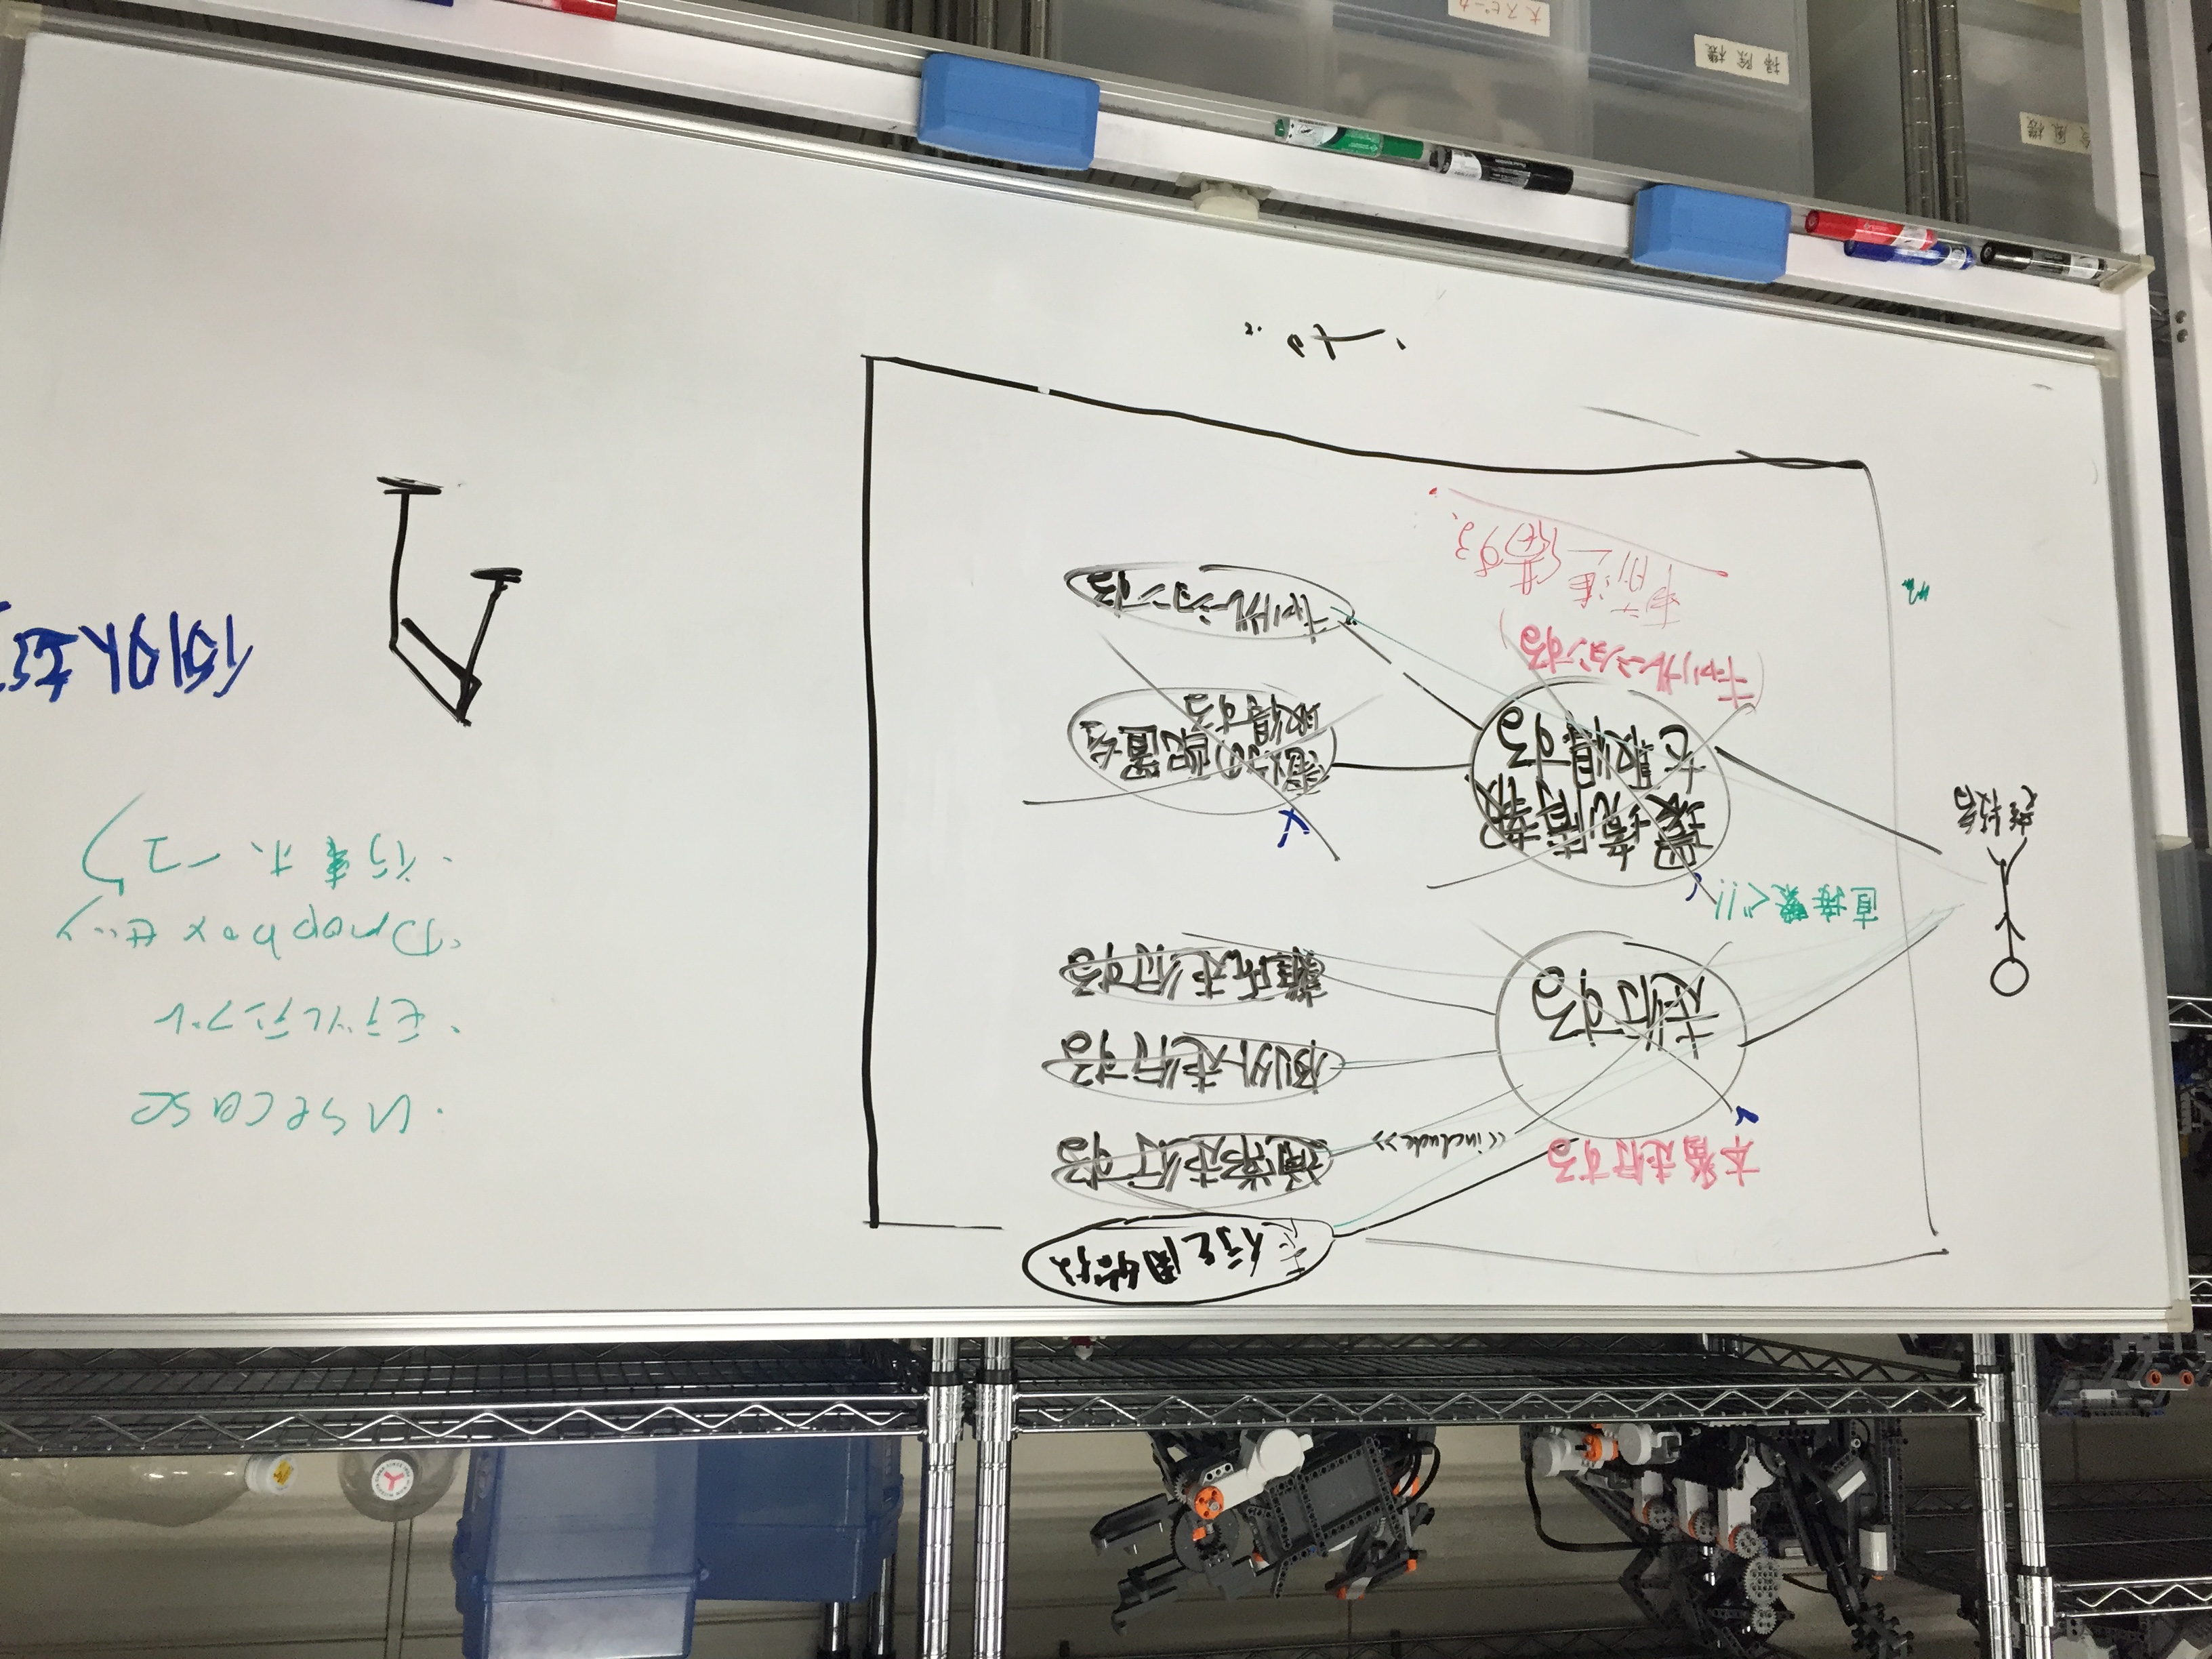 走行を開始する
本番走行する
<<include>>
通常走行する
走行する
例外走行する
難所走行する
直接繋ぐ!!
競技者
環境情報
を取得する
電灯の配置を
取得する
(キャリブレーションする)
キャリブレーションする
事前準備する
・usecase
・モデルテンプレ
・Dropbox せいり
・行事ホーコク
例外走行
扇風機
掃除機
大スピーカ